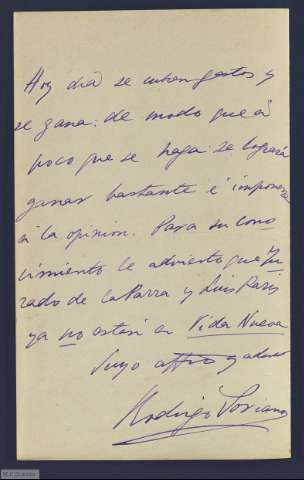 Hoy dia se cubren gastos y
se gana: de modo que á
poco que se haga se logrará
ganar bastante é imponerse
á la opinion. Para su cono
cimiento le advierto que Ju
rado de la Parra y Luis Paris
ya no están en Vida Nueva
Suyo affmo y admor
Rodrigo Soriano